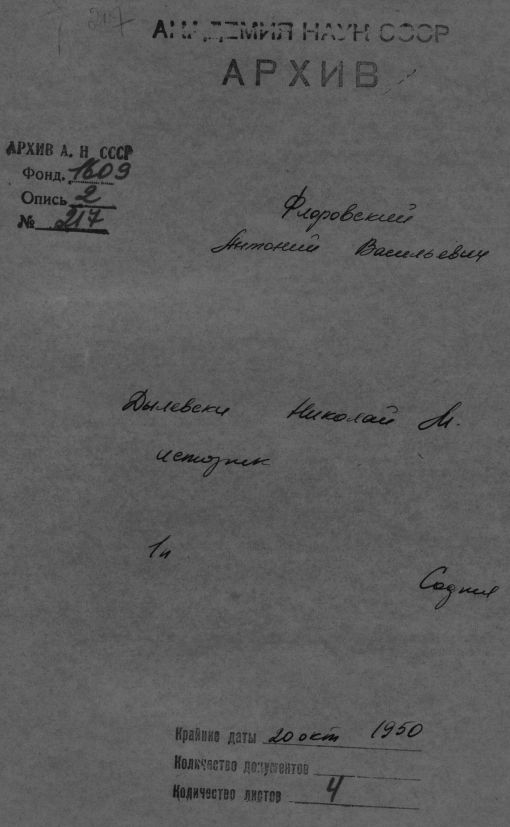 217
АКАДЕМИЯ НАУК СССР
АРХИВ
АРХИВ А. Н СССР
Фонд. 1609
Опись 2
№ 217
Флоровский
Антоний Васильевич
Дылевски Николай М.
историк
1п
София
Крайние даты 20 окт 1950
Количество документов
Количество листов 4